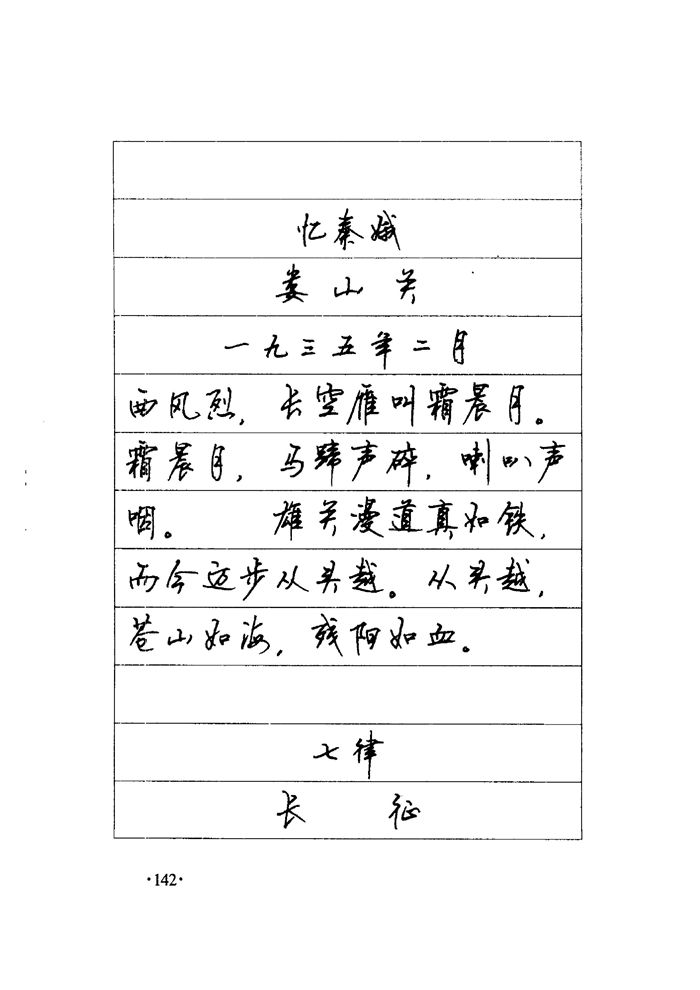 忆秦娥
娄山关
一九三五年二月
西风烈，长空雁叫霜晨月。
霜晨月，马蹄声碎，喇叭声
咽。 雄关漫道真如铁，
而今迈步从头越。从头越，
苍山如海，残阳如血。
七律
长 征
·142·